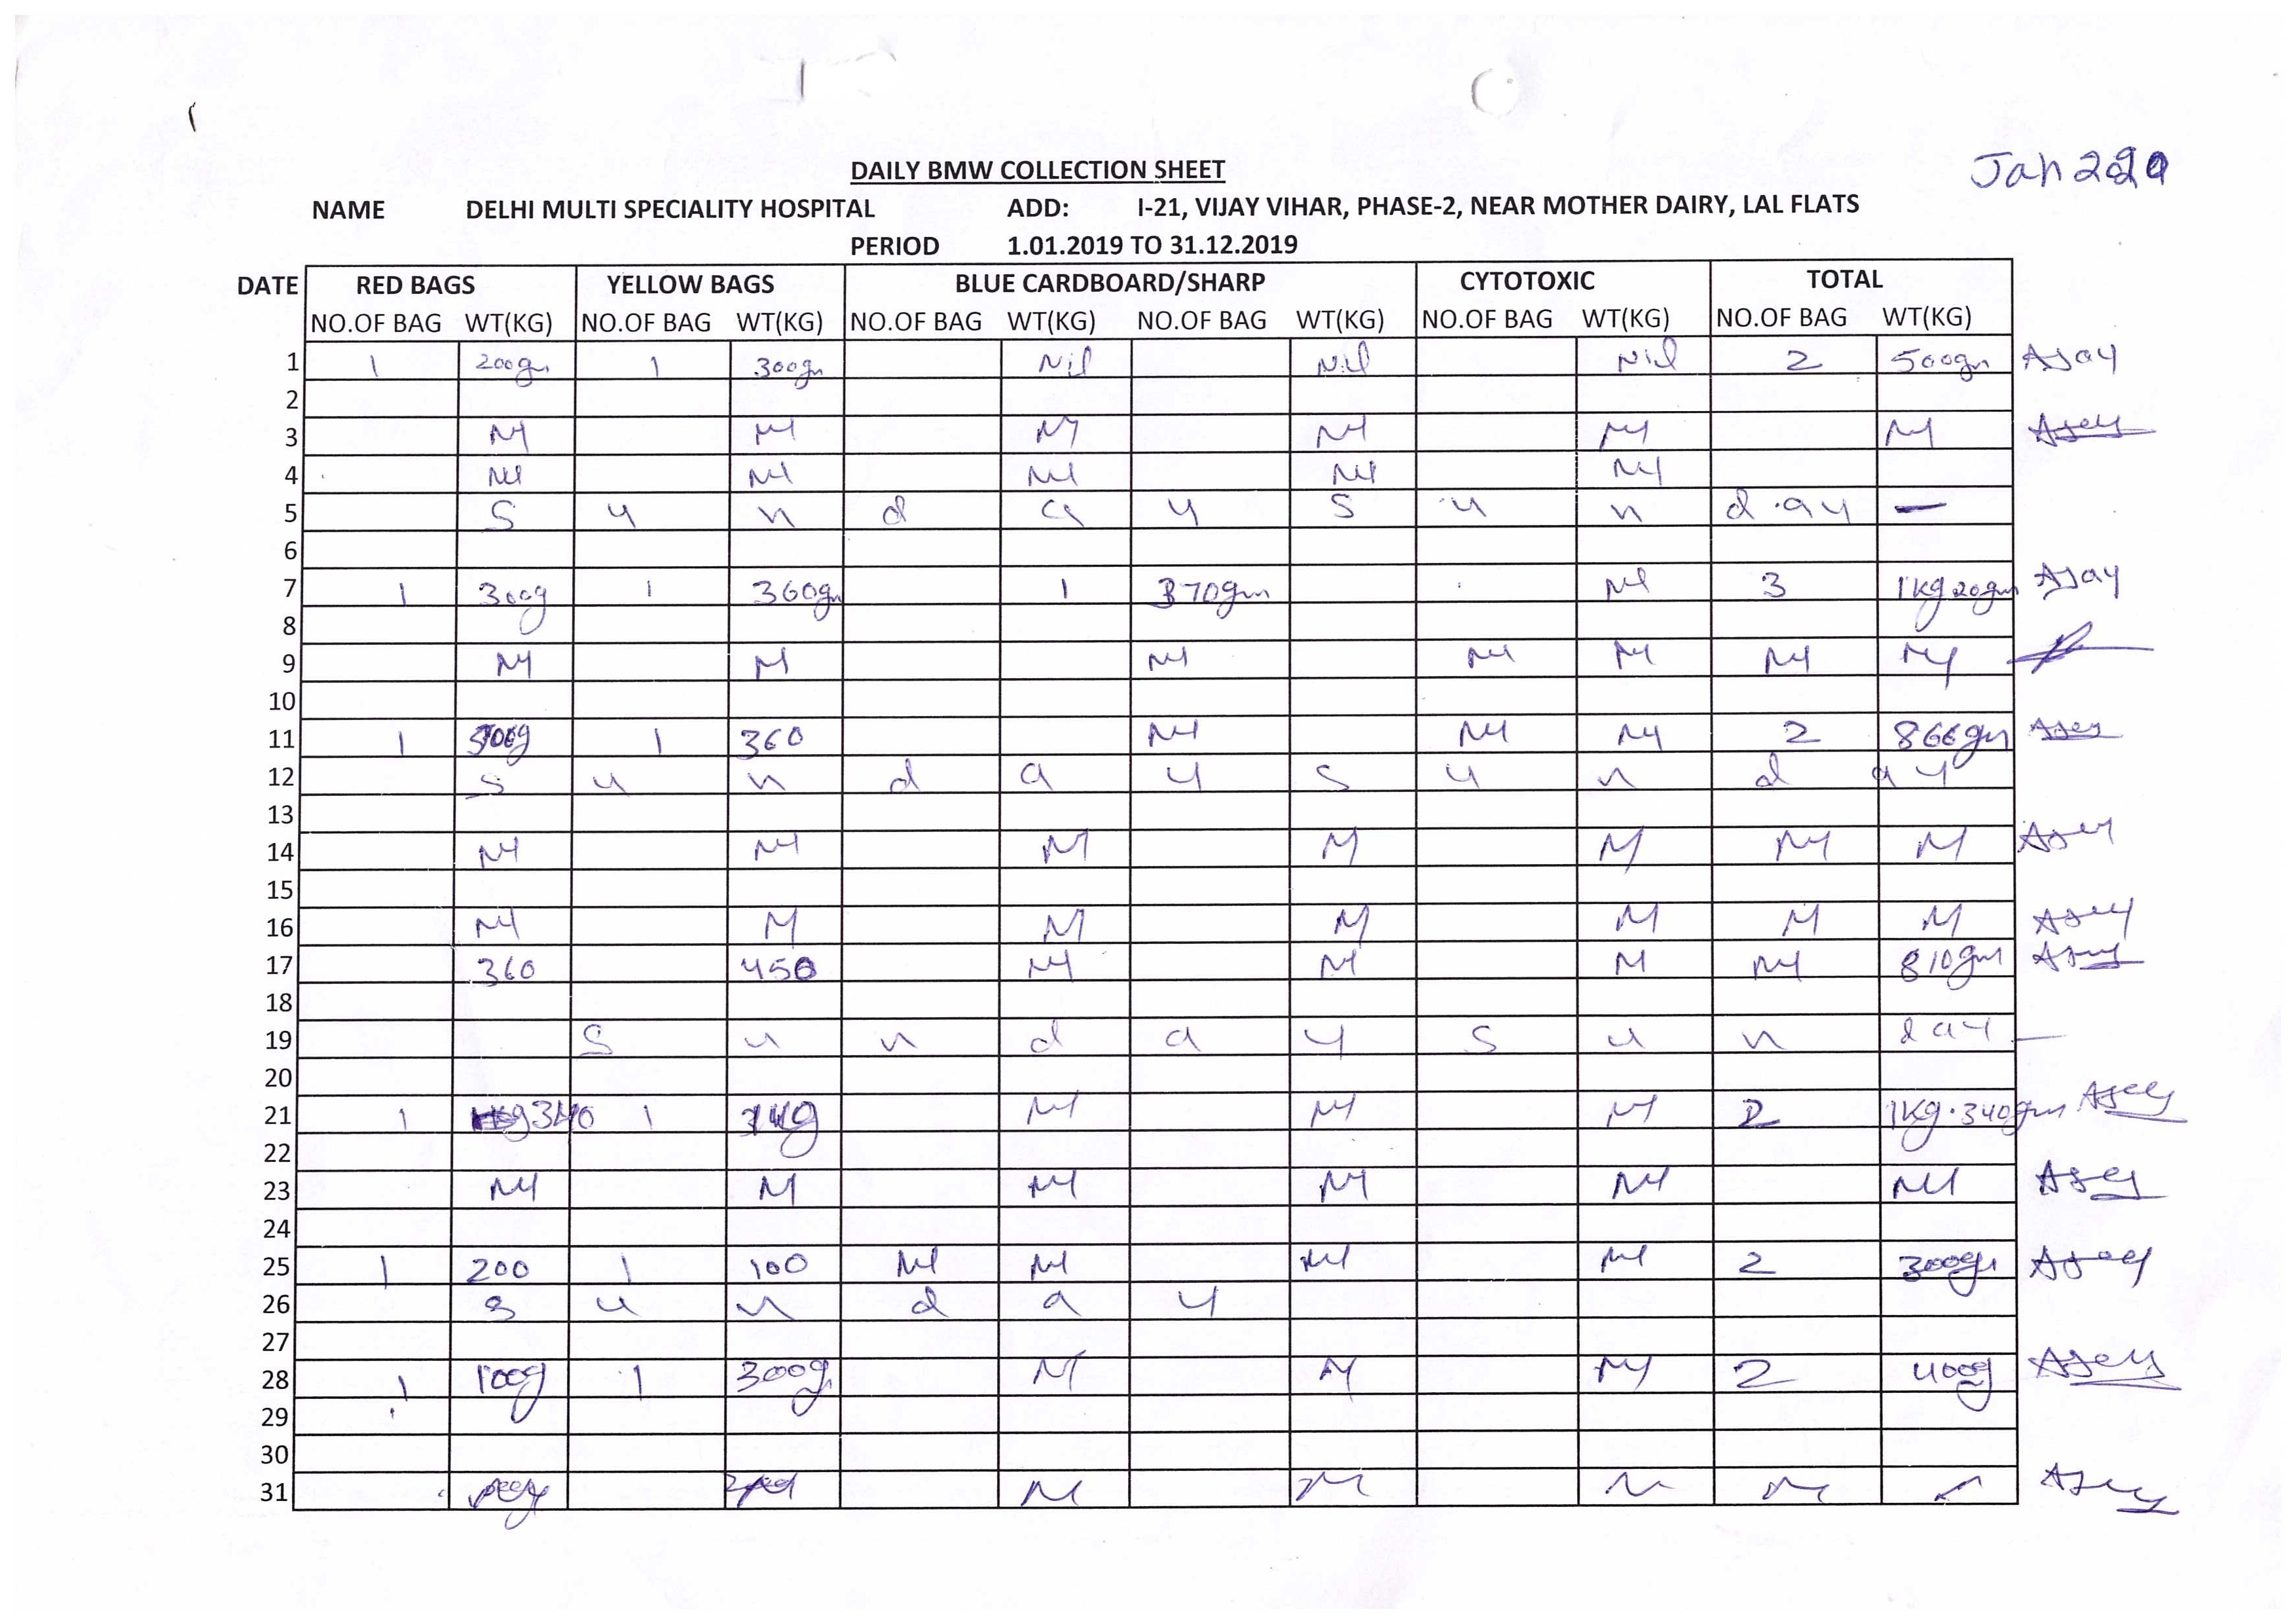 Jan 2020
DAILY BMW COLLECTION SHEET
NAME DELHI MULTI SPECIALITY HOSPITAL ADD: I-21, VIJAY VIHAR, PHASE-2, NEAR MOTHER DAIRY, LAL FLATS
PERIOD 1.01.2019 TO 31.12.2019
DATE RED BAGS YELLOW BAGS BLUE CARDBOARD/SHARP CYTOTOXIC TOTAL
NO.OF BAG WT(KG) NO.OF BAG WT(KG) NO.OF BAG WT(KG) NO.OF BAG WT(KG) NO.OF BAG WT(KG) NO.OF BAG WT(KG)
1 1 200gm 1 300gm Nil Nil Nil 2 500gm Ajay
2
3 Nil Nil Nil Nil Nil Nil Ajay
4 Nil Nil Nil Nil Nil
5 S u n d a y S u n d ay —
6
7 1 300g 1 360gm 1 370gm Nil 3 1kg 20gm Ajay
8
9 Nil Nil Nil Nil Nil Nil Nil
10
11 1 1 360 Nil Nil Nil 2 866gm Ajay
12 S u n d a y S u n d a y
13
14 Nil Nil Nil Nil Nil Nil Nil Ajay
15
16 Nil Nil Nil Nil Nil Nil Nil Ajay
17 360 450 Nil Nil Nil Nil 810gm Ajay
18
19 S u n d a y S u n day
20
21 1 340 1 1kg Nil Nil Nil 2 1kg.340gm Ajay
22
23 Nil Nil Nil Nil Nil Nil Ajay
24
25 1 200 1 100 Nil Nil Nil Nil 2 300gm Ajay
26 S u n d a y
27
28 1 100g 1 300g Nil Nil Nil 2 400g Ajay
29
30
31 Nil Nil Nil Nil Ajay